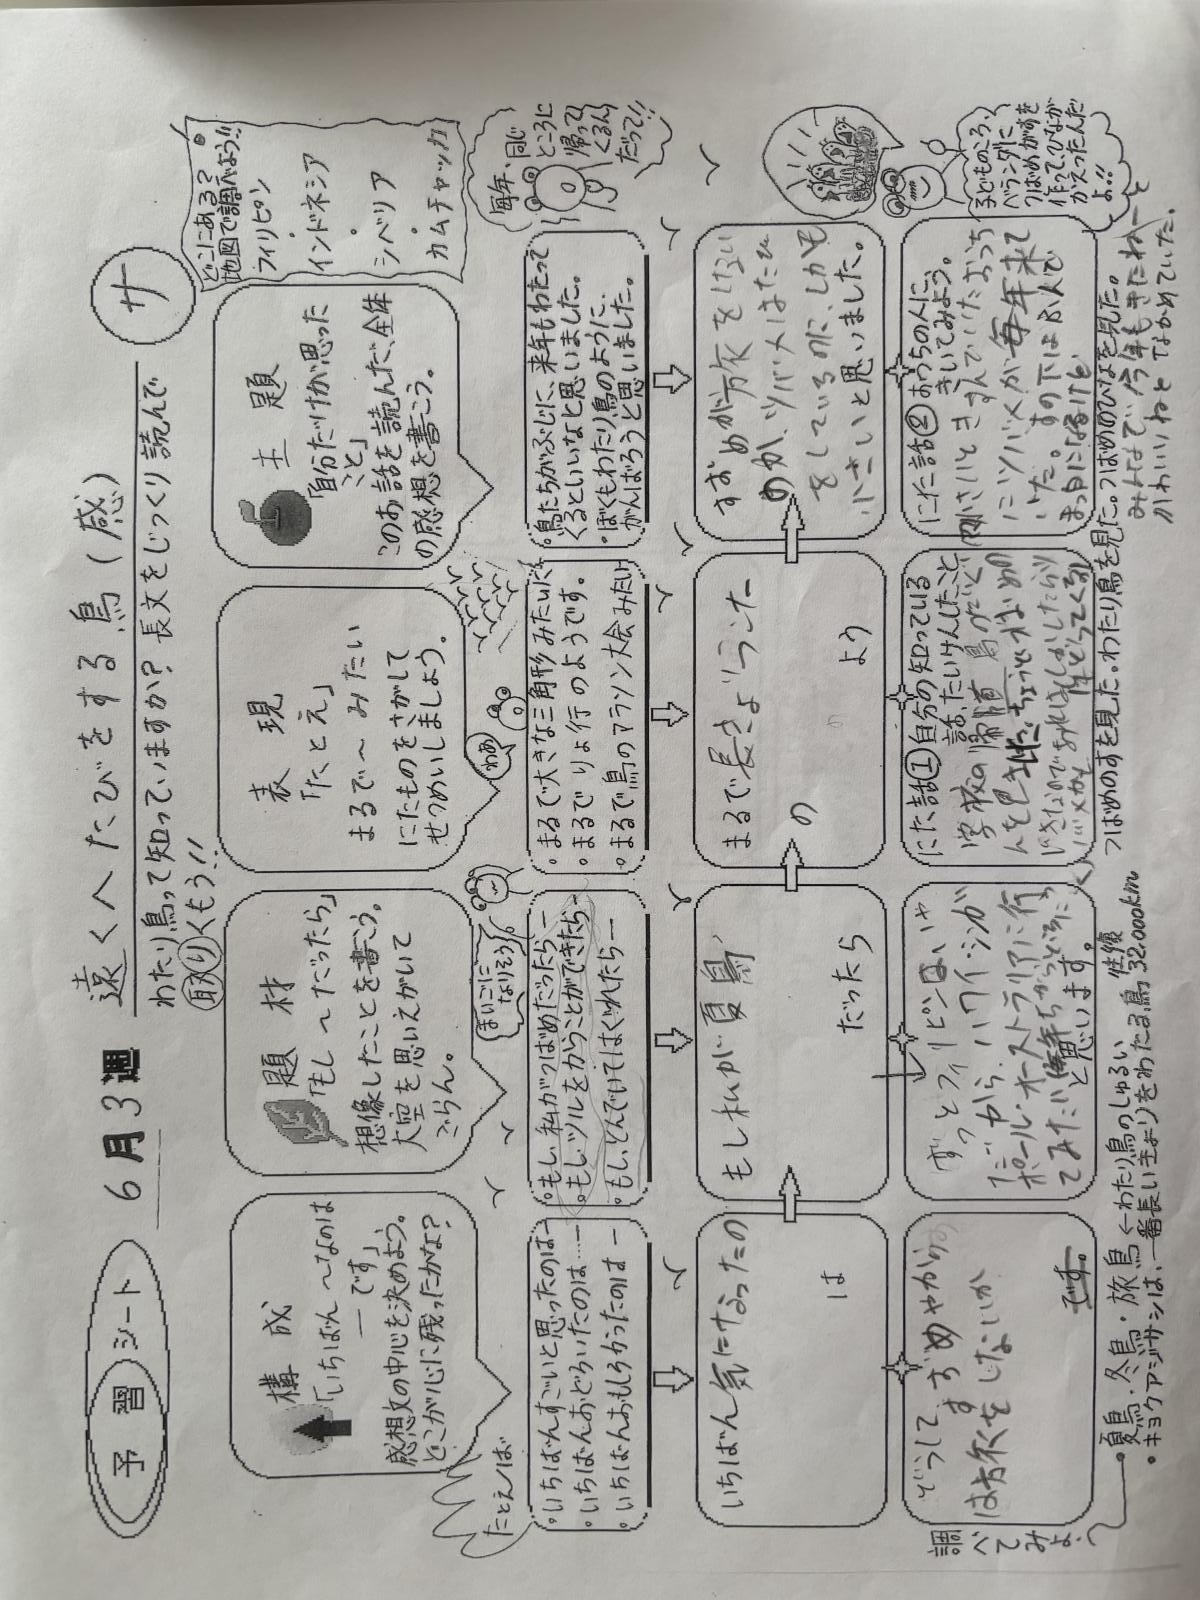 予習シート
6月3週
遠くへたびをする鳥(感)
サ
わたり鳥って知っていますか?長文をじっくり読んで
取りくもう!!
どこにある?
地図で調べよう!!
フィリピン
・
インドネシア
・
シベリア
・
カムチャッカ
構成
「いちばん〜なのは
―です」
感想文の中心を決めよう。
どこが心に残ったかな?
題材
「もし〜だったら」
想像したことを書こう。
大空を思いえがいて
ごらん。
表現
「たとえ」
まるで〜みたい
にたものをさがして
せつめいしましょう。
主題
「自分だけが思った
こと」
このお話を読んだ、全体
の感想を書こう。
たとえば
まいごに
なりそう
わあ
毎年、同じ
ところに
帰って
くるん
だって!!
・いちばんすごいと思ったのは―
・いちばんおどろいたのは…―
・いちばんおもしろかったのは―
・もし、私がつばめだったら―
・もし、ツルをからことができたら―
・もし、とんでいてはぐれたら―
・まるで大きな三角形みたいだ
・まるでりょ行のようです。
・まるで鳥のマラソン大会みたい
・鳥たちがぶじに、来年もわたって
くるといいなと思いました。
・ぼくもわたり鳥のように
がんばろうと思いました。
いちばん気になったの
は
もし私が夏鳥、
だったら
まるで長きょりランナー
の
より
すずめが旅をしない
のか、ツバメはたび
をしているのに、しかも
小さいと思いました。
どうしてすずめやから
は旅をしないか
です。
ずっとフィリピンはいや
だから、ハワイ・シンガ
ポール・オーストラリアに行
てみたい
と思います。
にた話①自分の知っている
話、たいけんしたこと
学校の帰り道
にた話②おうちの人に、
きいてみよう。
にツバメが毎年来て
いた。すの下は
まっ白になるけど
みんなで、今年もきたねーと
かわいいねとながめていた。
子どものころ、
ベランダに
つばめがすを
作って、ひなが
かえったんだ
よ!!
調べてみよ
・夏鳥・冬鳥・旅鳥←わたり鳥のしゅるい
・キョクアジサシは、一番長いきょりをわたる鳥 往復32.000km
つばめのすを見た。わたり鳥を見た。つばめのひなを見た。